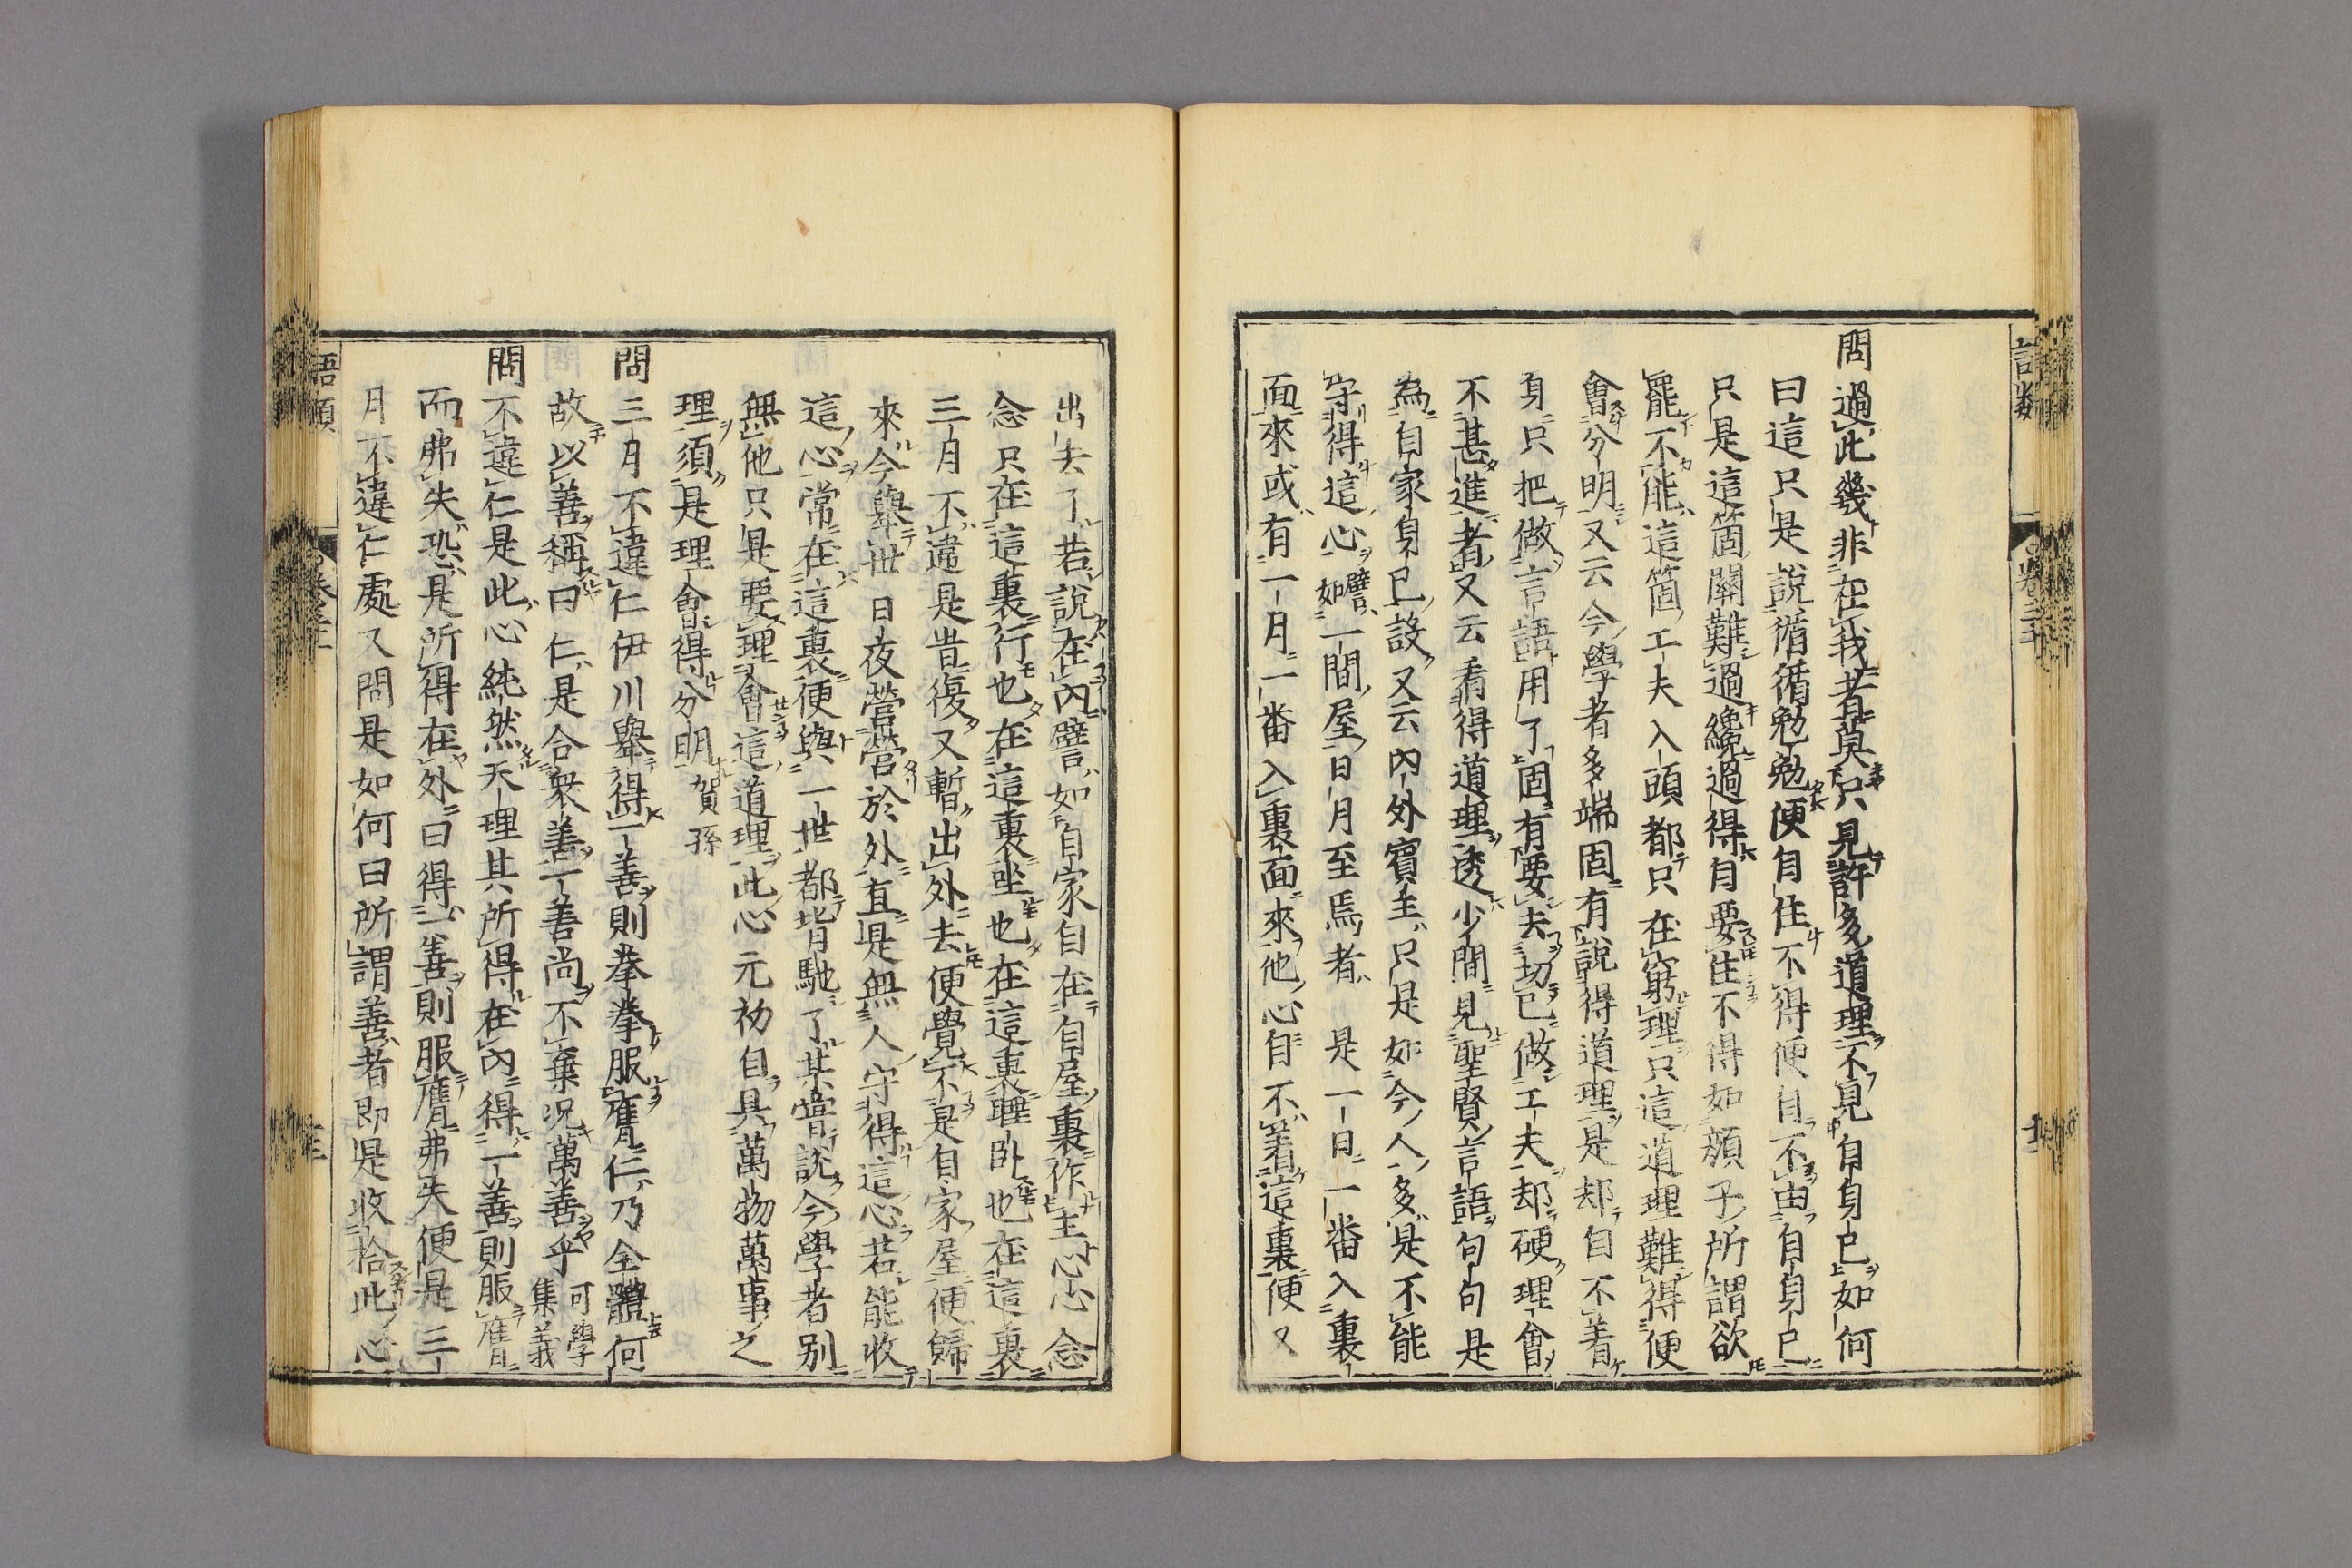 問過此幾非在我者莫只見許多道理不見自身己如何
曰這只是說循循勉勉便自住不得便自不由自身己
只是這箇關難過纔過得自要住不得如顏子所謂欲
罷不能這箇工夫入頭都只在窮理只這道理難得便
會分明又云今學者多端固有說得道理是却自不著
身只把做言語用了固有要去切己做工夫却硬理會
不甚進者又云看得道理透少間見聖賢言語句句是
為自家身己設又云內外賓主只是如今人多是不能
守得這心譬如一間屋日月至焉者是一日一番入裏
面來或有一月一番入裏面來他心自不著這裏便又
出去了若說在內譬如自家自在自屋裏作主心心念
念只在這裏行也在這裏坐也在這裏睡卧也在這裏
三月不違是昔復又暫出外去便覺不是自家屋便歸
來今舉世日夜營營於外直是無人守得這心若能收
這心常在這裏便與一世都背馳了某嘗說今學者別
無他只是要理會這道理此心元初自具萬物萬事之
理須是理會得分明 賀孫
問三月不違仁伊川舉得一善則拳拳服膺仁乃全體何
故以善稱曰仁是合衆善一善尚不棄況萬善乎 可學 集義
問不違仁是此心純然天理其所得在內得一善則服膺
而弗失恐是所得在外曰得一善則服膺弗失便是三
月不違仁處又問是如何曰所謂善者即是收拾此心
語類
卷三十